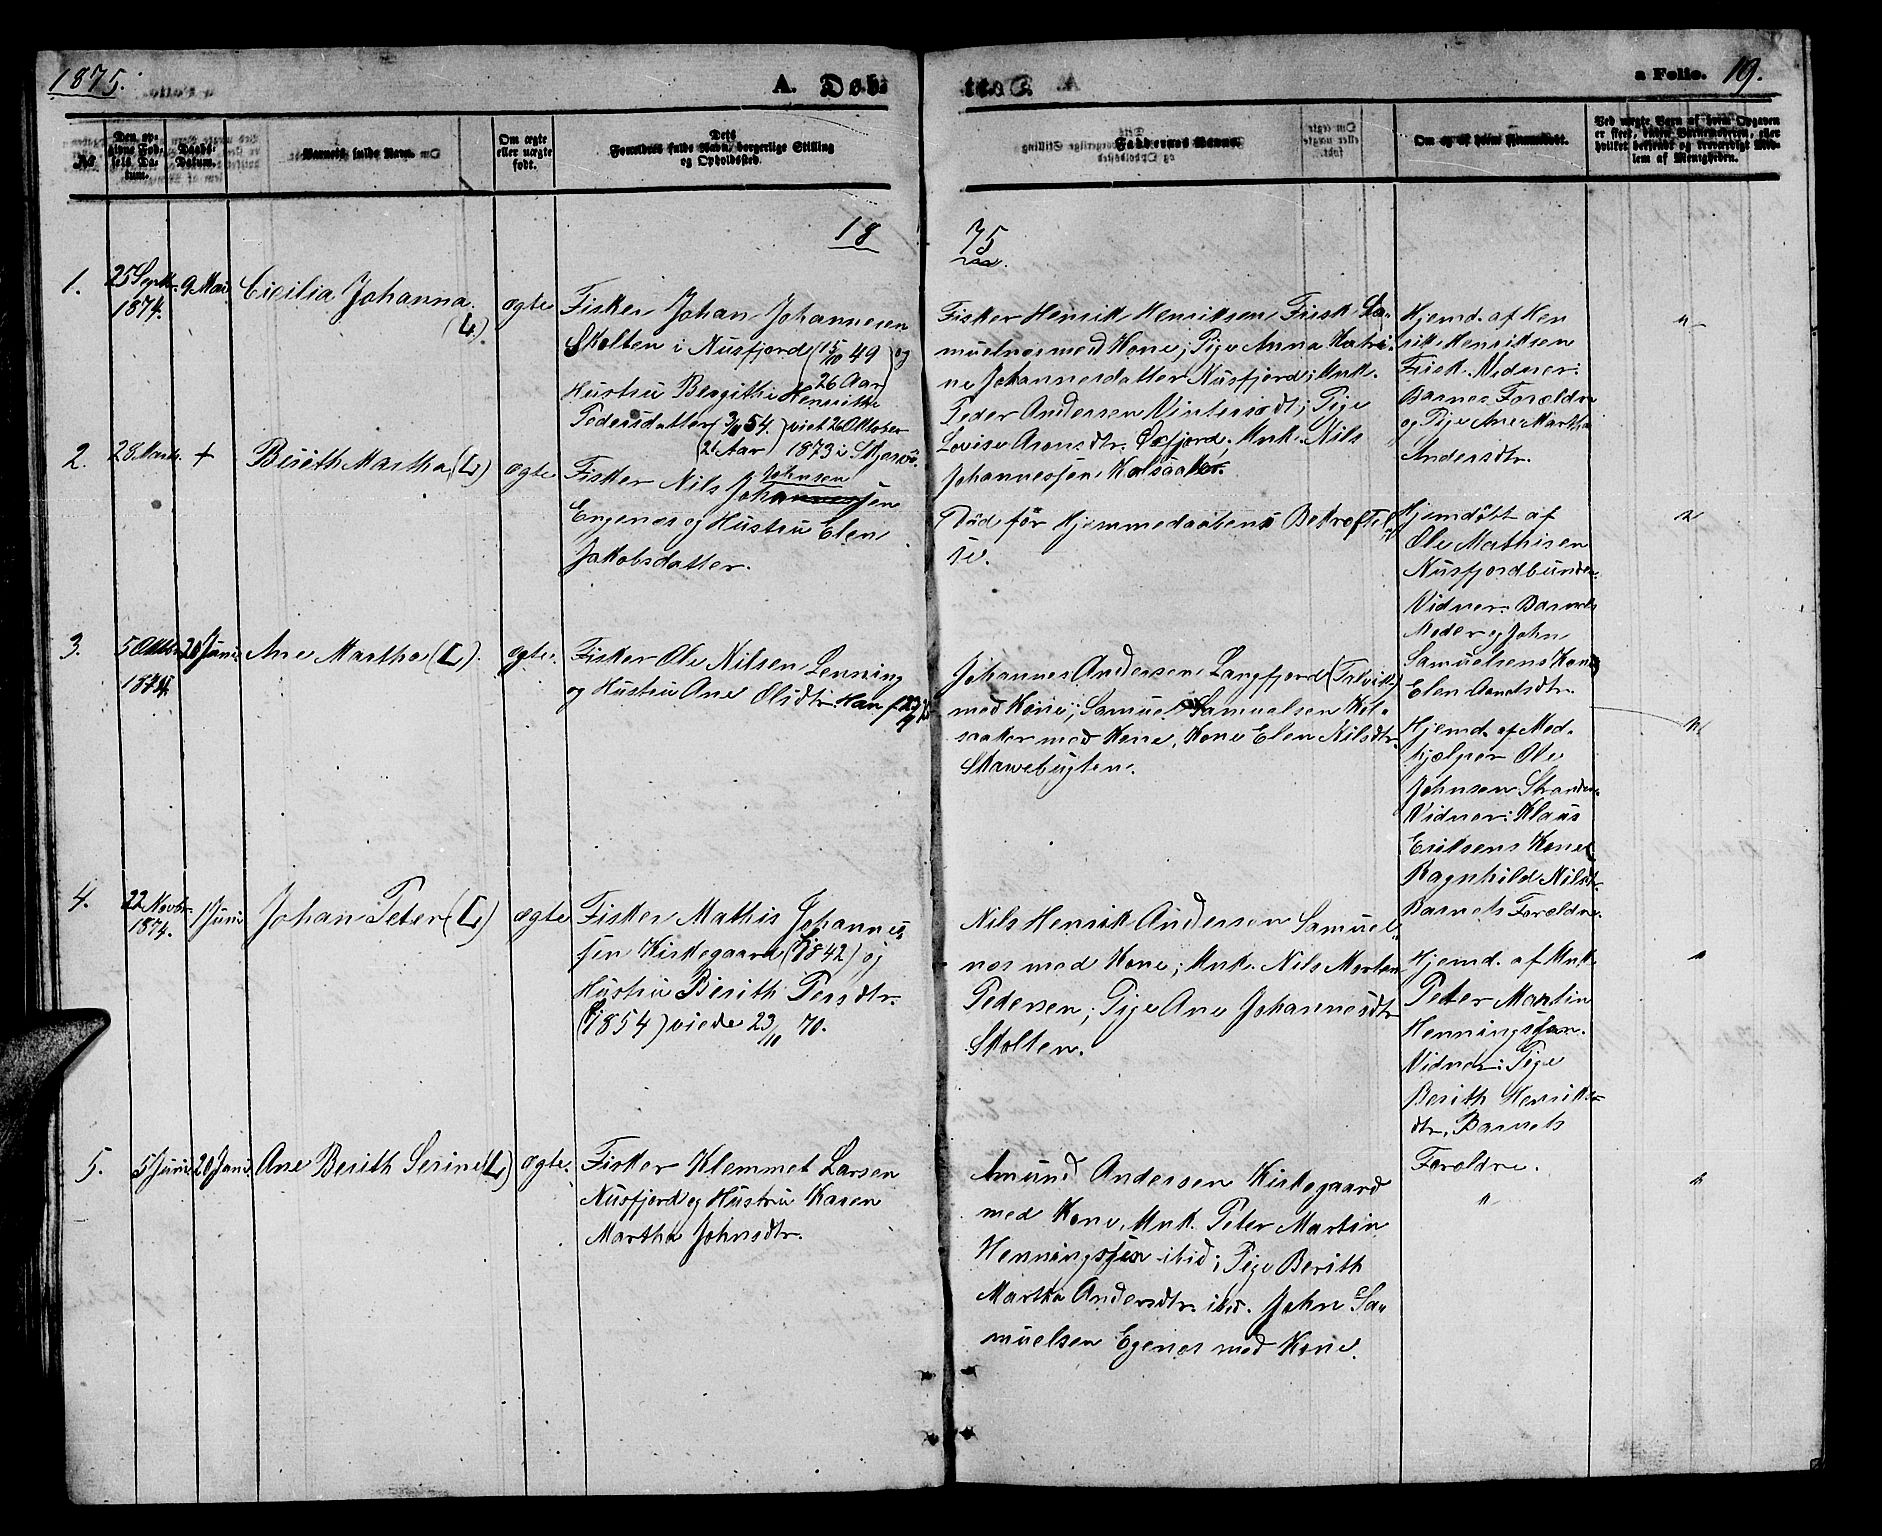 1875.
A. Døb
te.
a Folio. 19.
No
Den opgivne Fødsels Datum.
Daabs Datum.
Barnets fulde Navn.
Om ægte eller uægte født.
Dets Forældres fulde Navn, borgerlige Stilling og Opholdssted.
Faddernes Navne
Om og af hvem hjemmedøbt.
Ved uægte Børn af hvem Opgaven er skeet, baade Barnemoderen, eller hvilket bekjendt og troværdigt Medlem af Menigheden.
18
75
1.
25 Septr.
1874.
9 Mai
Cicilia Johanna.
(L)
ægte
Fisker Johan Johannesen
Skolten i Nusfjord (15/10 49 og
26 Aar)
Hustru Beggithe Henrikke
Pedersdatter (3/11 54.) viet 26 Oktober
(21 Aar) 1873 i Skjervø.
Fisker Henrik Henriksen Fiisk Sa-
muelnes med Kone; Pige Anna Katri-
ne Johannesdatter Nusfjord; Unk.
Peder Andersen Vintersodt; Pige
Lovise Aronsdtr. Øxfjord, Unk. Nils
Johannessen Kalsaaker.
Hjemd. af Hen
rik Henriksen
Fiisk. Vidner:
Barnes Forældre
og Pige Ane Martha
Andersdtr.
"
2.
28 Marts.
+
Berith Martha (L)
ægte
Fisker Nils Johannessen
Johnsen
Engenes og Hustru Elen
Jakobsdatter.
Død før Hjemmedaabens Bekræftel
se.
Hjemdøbt af
Ole Mathisen
Nusfjordbunden.
Vidner: Barnets
Moder og John
Samuelsens Kone
Elen Arntsdtr.
"
3.
5 Oktbr.
1874.
20 Juni.
Ane Martha (L).
ægte.
Fisker Ole Nilsen Lenning
og Hustru Ane Olsdtr. Han f.
Johannes Andersen Langfjord (Talvik)
med Kone; Samuel Samuelsen Kal-
saaker med Kone, Kone Elen Nilsdtr.
Skavebugten.
Hjemd. af Med-
hjælper Ole
Johnsen Stranden.
Vidner: Klaus
Eriksens Kone
Ragnhild Nilsdtr.
Barnets Forældre.
"
4.
22 Novbr.
1874.
1 Juni
Johan Peter (L)
ægte
Fisker Mathis Johannes-
sen Kirkegaard (1842) og
Hustru Berith Persdtr.
(1854) viede 23/10 70.
Nils Henrik Andersen Samuel-
nes med Kone; Unk. Nils Morten
Pedersen; Pige Ane Johannesdtr
Skolten.
Hjemd. af Unk.
Peter Martin
Henningssen.
Vidner: Pige
Berith Henriks-
dtr, Barnets
Forældre.
"
5.
5 Juni
20 Juni.
Ane Berith Serine (L)
ægte.
Fisker Klemmet Larsen
Nusfjord og Hustru Karen
Martha Johnsdtr.
Amund Andersen Kirkegaard
med Kone, Unk. Peter Martin
Henningssen ibid; Pige Berith
Martha Andersdtr. ibid. John Sa-
muelsen Egenes med Kone.
"
"